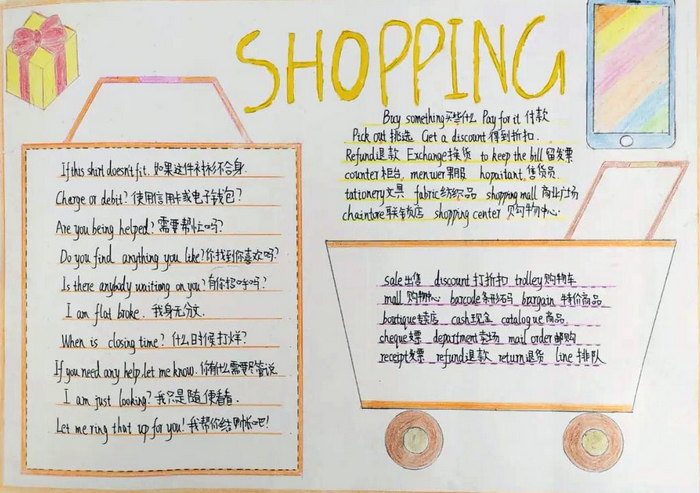 SHOPPING
If this shirt doesn't fit. 如果这件衬衫不合身.
Charge or debit? 使用信用卡或电子钱包?
Are you being helped? 需要帮忙吗?
Do you find anything you like? 你找到你喜欢吗?
Is there anybody waitiong on you? 有你招呼吗?
I am flat broke. 我身无分文.
When is closing time? 什么时候打烊?
If you need any help, let me know. 你有什么需要尽管说
I am just looking? 我只是随便看看.
Let me ring that up for you! 我帮你结账吧!
Buy something 买些什么 Pay for it 付款
Pick out 挑选 Get a discount 得到折扣.
Refund 退款 Exchange 换货 to keep the bill 留发票
counter 柜台, men wear 男服 hopaitant, 售货员
tationery 文具 fabric 纺织品 shopping mall 商业广场
chaintore 联锁店 shopping center 购物中心
sale 出售 discount 打折扣 trolley 购物车
mall 购物中心 barcode 条形码 brargain 特价商品
boutique 专卖店 cash 现金 catalogue 商品
sheque 支票 department 卖场 mail order 邮购
receipt 发票 refund 退款 return 退货 line 排队